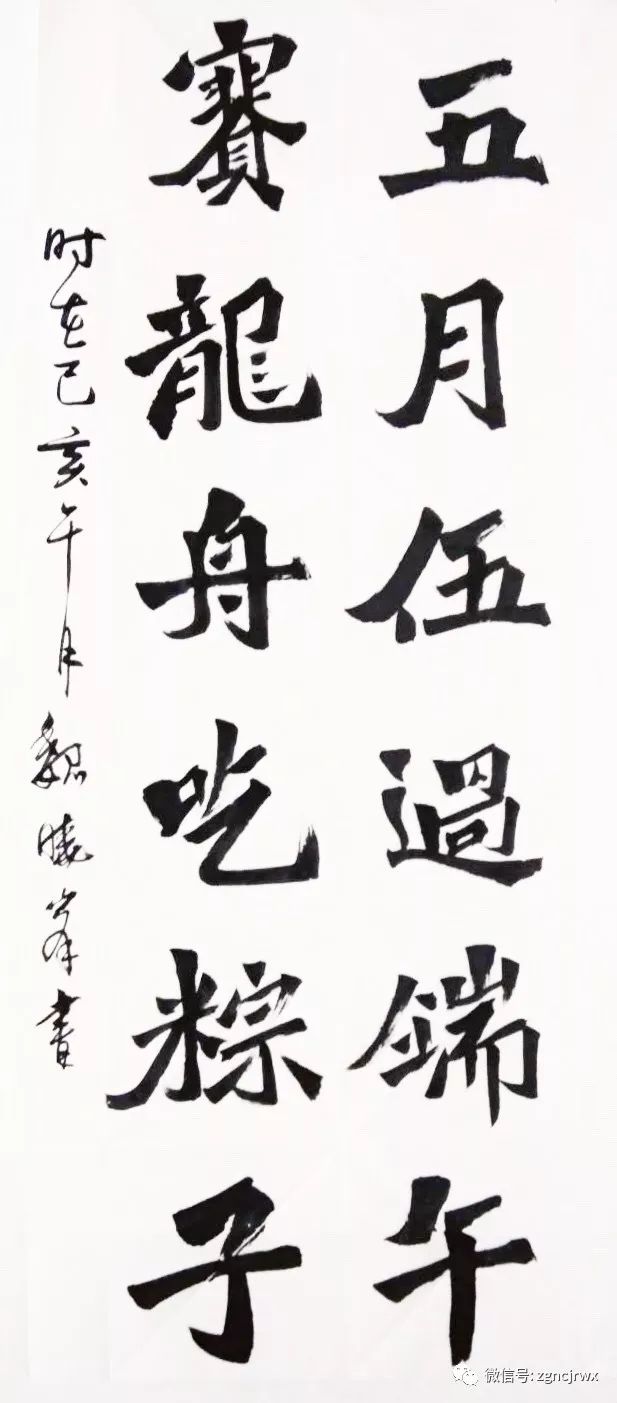 五月伍過端午
賽龍舟吃粽子
时在己亥午月魏曉峯書
微信号: zgncjrwx